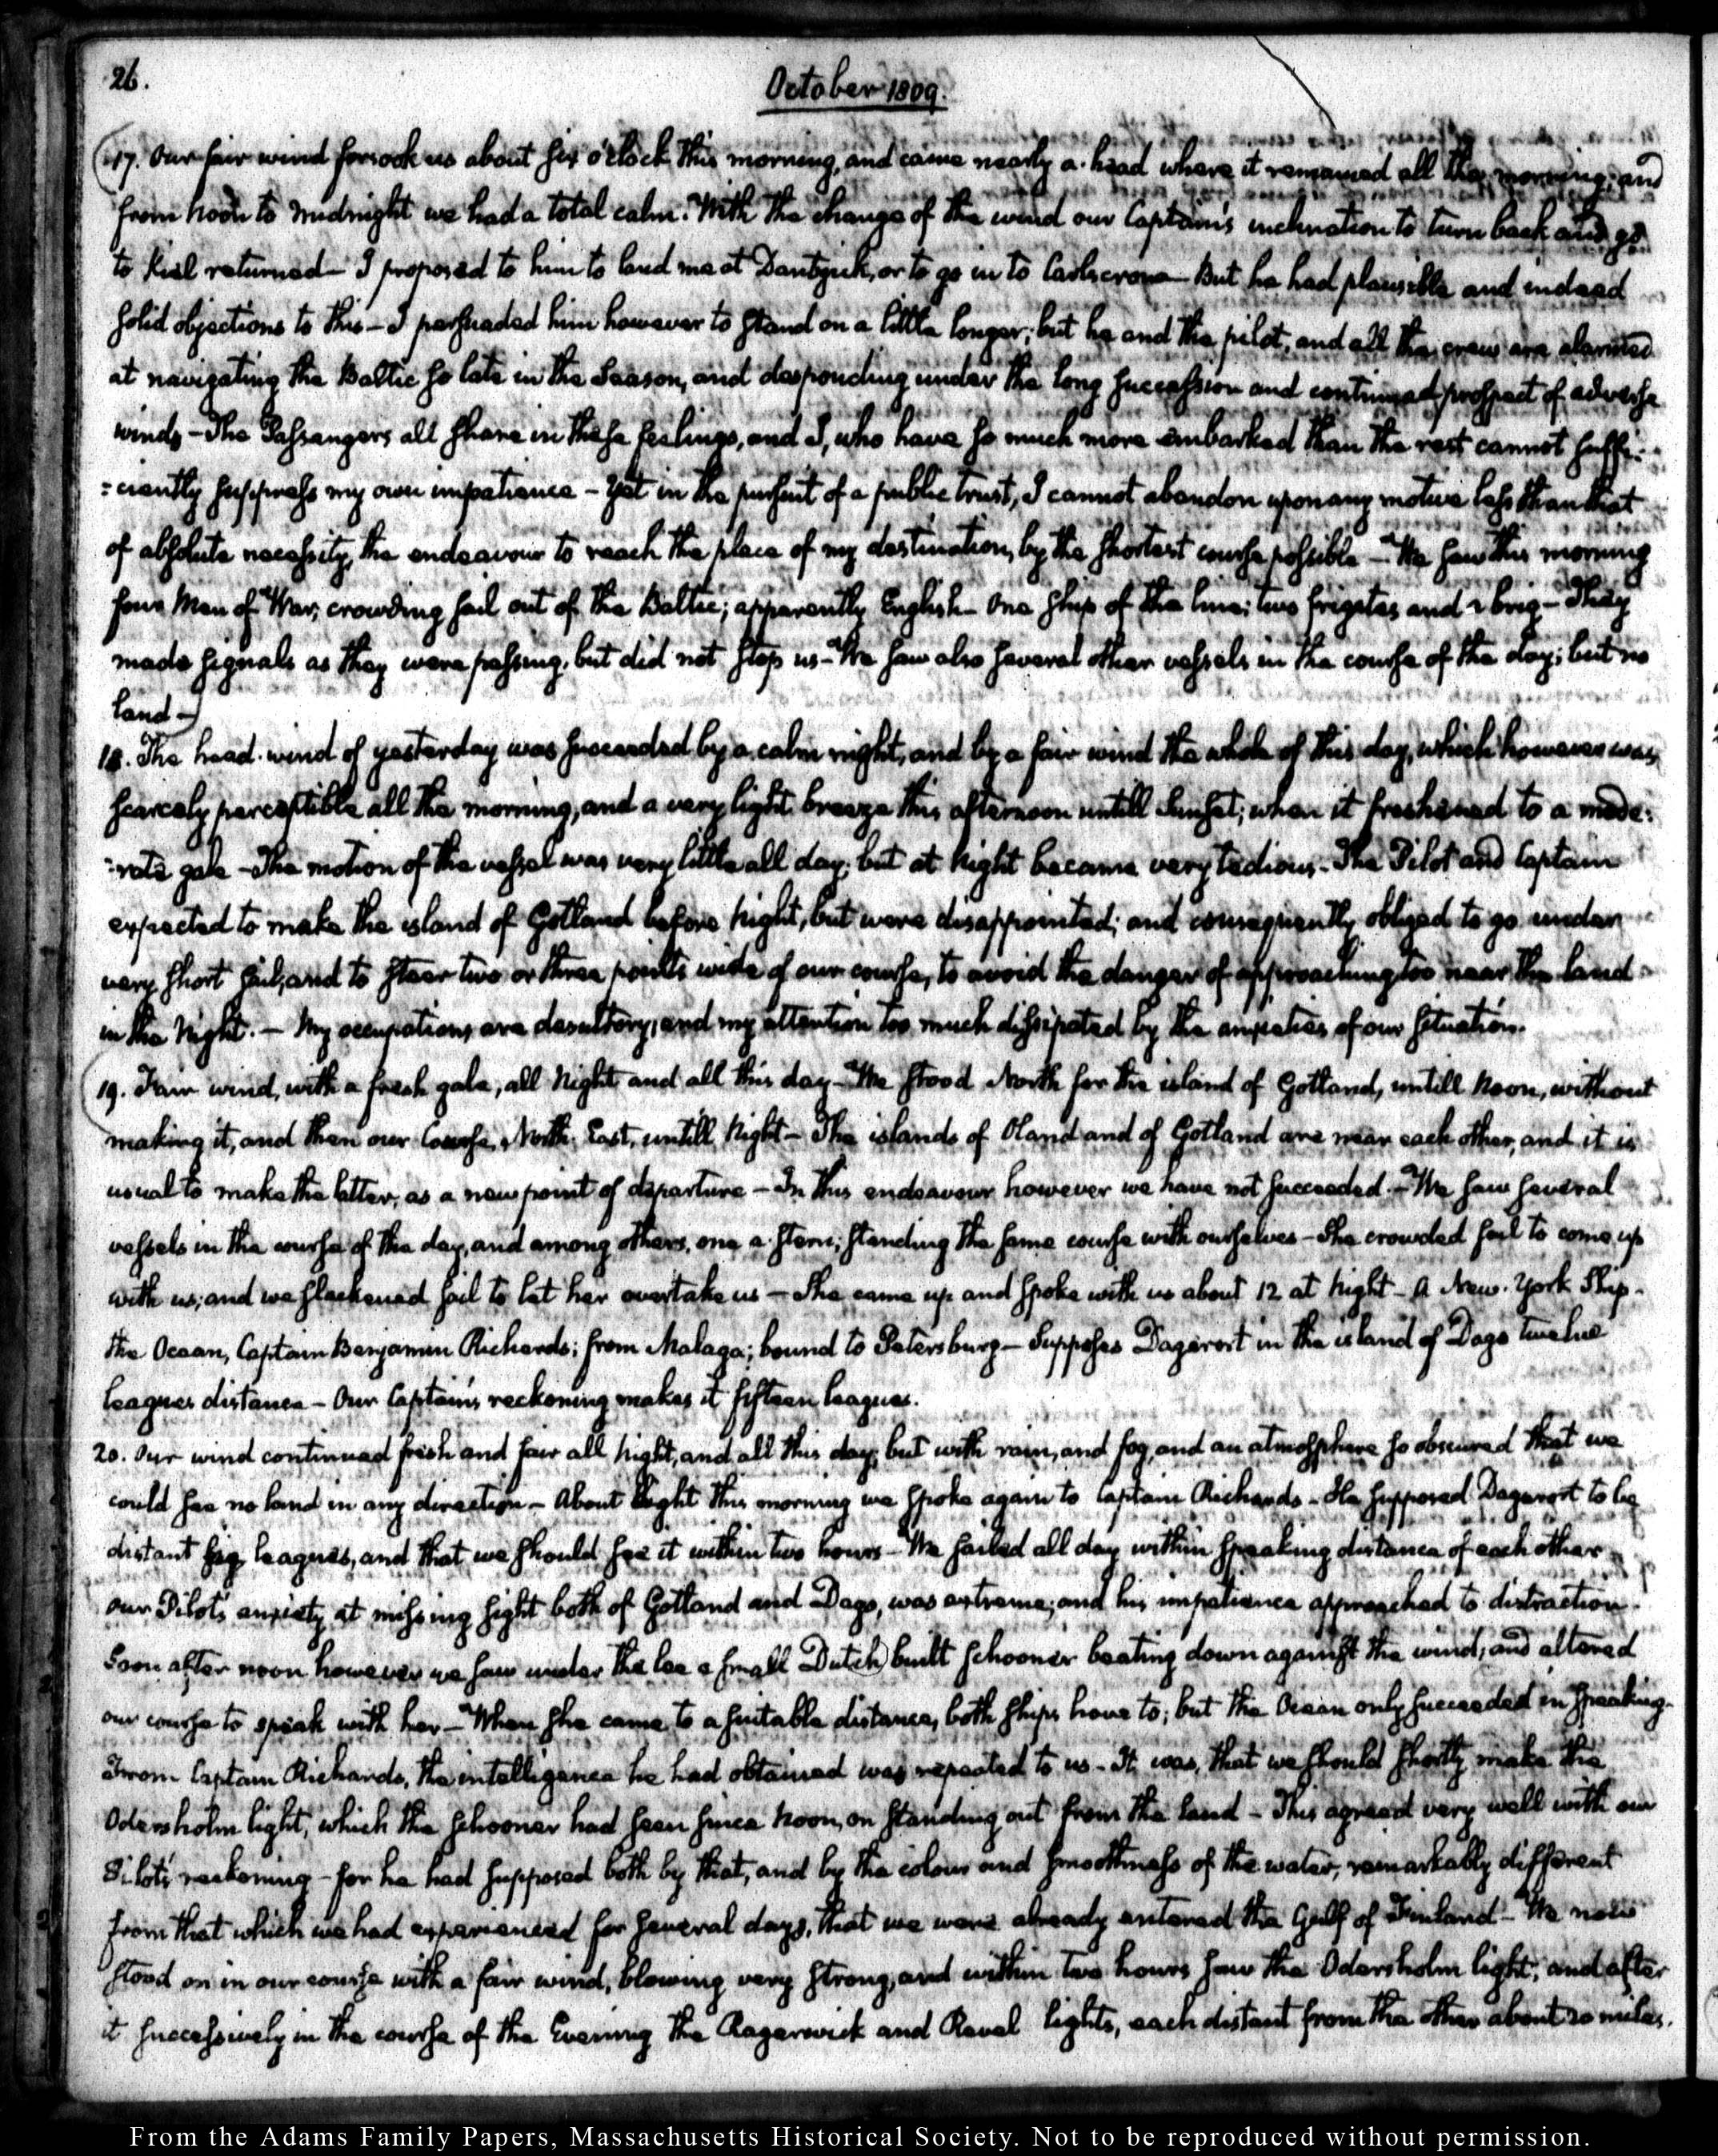 26.
October 1809.
17. Our fair wind forsook us about six o'clock this morning, and came nearly a-head where it remained all the morning; and
from Noon to midnight we had a total calm. With the change of the wind our Captain's inclination to turn back and go
to Kiel returned— I proposed to him to land me at Dantzick, or to go in to Carlscrona— But he had plausible and indeed
solid objections to this— I persuaded him however to stand on a little longer; but he and the pilot, and all the crew are alarmed
at navigating the Baltic so late in the Season, and desponding under the long succession and continued prospect of adverse
winds— The Passengers all share in these feelings, and I, who have so much more embarked than the rest cannot suffi-
:ciently suppress my own impatience— Yet in the pursuit of a public trust, I cannot abandon upon any motive less than that
of absolute necessity, the endeavour to reach the place of my destination, by the shortest course possible— We saw this morning
four Men of War, crowding sail out of the Baltic; apparently English— One ship of the line; two frigates and a brig— They
made signals as they were passing, but did not stop us— We saw also several other vessels in the course of the day; but no
land—
18. The head-wind of yesterday was succeeded by a calm night, and by a fair wind the whole of this day, which however was
scarcely perceptible all the morning, and a very light breeze this afternoon untill Sunset; when it freshened to a mode:
:rate gale— The motion of the vessel was very little all day; but at Night became very tedious— The Pilot and Captain
expected to make the island of Gotland before Night, but were disappointed; and consequently obliged to go under
very short sail, and to steer two or three points wide of our course, to avoid the danger of approaching too near the land
in the Night.— My occupations are desultory, and my attention too much dissipated by the anxieties of our situation.
19. Fair wind, with a fresh gale, all Night and all this day— We stood North for the island of Gotland, untill Noon, without
making it, and then our Course, North-East, untill Night— The islands of Oland and of Gotland are near each other, and it is
usual to make the latter, as a new point of departure— In this endeavour however we have not succeeded.— We saw several
vessels in the course of the day, and among others, one a-stern, standing the same course with ourselves— She crowded sail to come up
with us; and we slackened sail to let her overtake us— She came up and spoke with us about 12 at Night— A New-York Ship—
the Ocean, Captain Benjamin Richards; from Malaga; bound to Petersburg— Supposes Dagerort in the island of Dago twelve
leagues distance— Our Captain's reckoning makes it fifteen leagues.
20. Our wind continued fresh and fair all Night, and all this day; but with rain, and fog, and an atmosphere so obscured that we
could see no land in any direction— About Eight this morning we spoke again to Captain Richards— He supposed Dagerort to be
distant six leagues, and that we should see it within two hours— We sailed all day within speaking distance of each other—
our Pilot's anxiety, at missing sight both of Gotland and Dago, was extreme; and his impatience approached to distraction.
Soon after noon however we saw under the lee a small Dutch built schooner beating down against the wind, and altered
our course to speak with her— When she came to a suitable distance, both ships hove to; but the Ocean only succeeded in speaking.
From Captain Richards, the intelligence he had obtained was repeated to us— It was, that we should shortly make the
Odersholm light, which the schooner had seen since Noon, on standing out from the land— This agreed very well with our
Pilot's reckoning— for he had supposed both by that, and by the colour and smoothness of the water, remarkably different
from that which we had experienced for several days, that we were already entered the Gulf of Finland— We now
stood on in our course with a fair wind, blowing very strong, and within two hours saw the Odersholm light; and after
it successively in the course of the Evening the Ragerwick and Reval lights, each distant from the other about 20 miles.
From the Adams Family Papers, Massachusetts Historical Society. Not to be reproduced without permission.